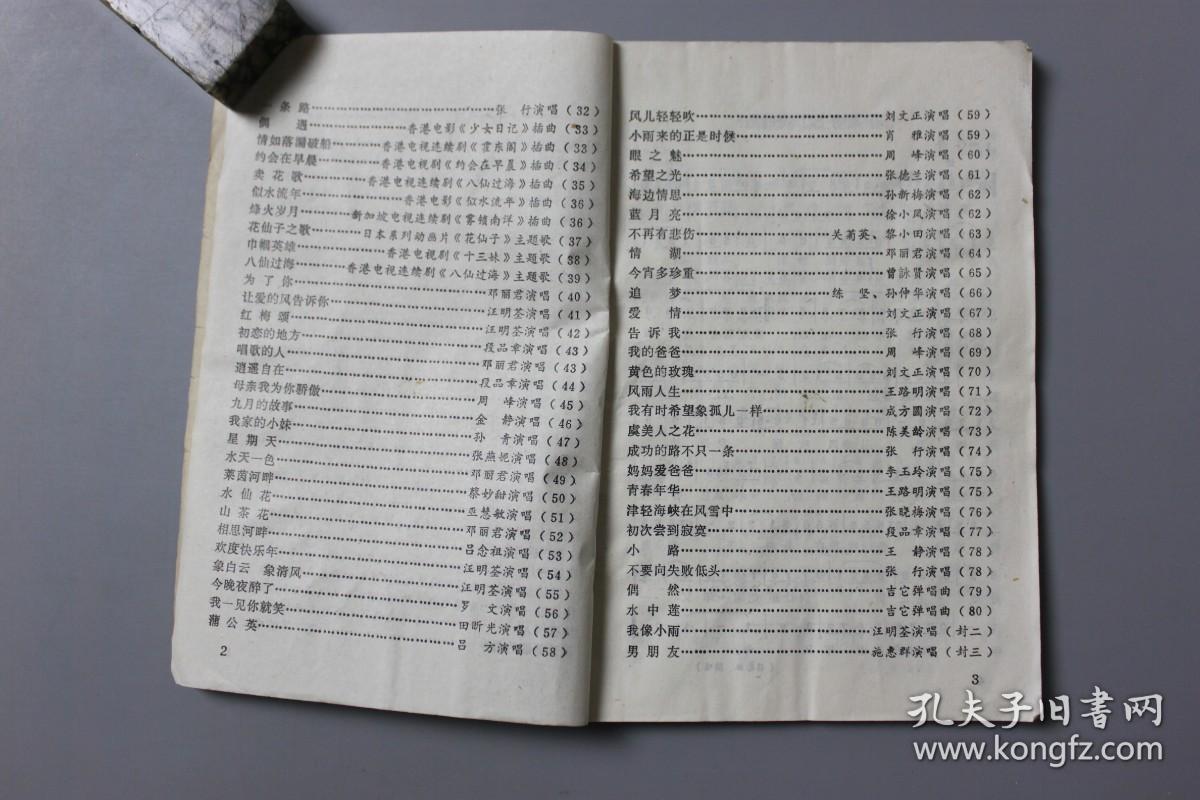 一条路……张 行演唱(32)
偶 遇……香港电影《少女日记》插曲(33)
情如落漏破船……香港电视连续剧《霍东阁》插曲(33)
约会在早晨……香港电视剧《约会在早晨》插曲(34)
卖花歌……香港电视连续剧《八仙过海》插曲(35)
似水流年……香港电影《似水流年》插曲(36)
烽火岁月……新加坡电视连续剧《雾锁南洋》插曲(36)
花仙子之歌……日本系列动画片《花仙子》主题歌(37)
巾帼英雄……香港电视剧《十三妹》主题歌(38)
八仙过海……香港电视连续剧《八仙过海》主题歌(39)
为了你……邓丽君演唱(40)
让爱的风告诉你……汪明荃演唱(41)
红梅颂……汪明荃演唱(42)
初恋的地方……段品章演唱(43)
唱歌的人……邓丽君演唱(43)
逍遥自在……段品章演唱(44)
母亲我为你骄傲……周 峰演唱(45)
九月的故事……金 静演唱(46)
我家的小妹……孙 青演唱(47)
星期天……张燕妮演唱(48)
水天一色……邓丽君演唱(49)
莱茵河畔……蔡妙甜演唱(50)
水仙花……巫慧敏演唱(51)
山茶花……邓丽君演唱(52)
相思河畔……吕念祖演唱(53)
欢度快乐年……汪明荃演唱(54)
象白云 象清风……汪明荃演唱(55)
今晚夜醉了……罗 文演唱(56)
我一见你就笑……田昕光演唱(57)
蒲公英……吕 方演唱(58)
2
风儿轻轻吹……刘文正演唱(59)
小雨来的正是时候……肖 雅演唱(59)
眼之魅……周 峰演唱(60)
希望之光……张德兰演唱(61)
海边情思……孙新梅演唱(62)
蓝月亮……徐小凤演唱(62)
不再有悲伤……关菊英、黎小田演唱(63)
情 湖……邓丽君演唱(64)
今宵多珍重……曾詠贤演唱(65)
追 梦……练 坚、孙仲华演唱(66)
爱 情……刘文正演唱(67)
告诉我……张 行演唱(68)
我的爸爸……周 峰演唱(69)
黄色的玫瑰……刘文正演唱(70)
风雨人生……王路明演唱(71)
我有时希望象孤儿一样……成方圆演唱(72)
虞美人之花……陈美龄演唱(73)
成功的路不只一条……张 行演唱(74)
妈妈爱爸爸……李玉玲演唱(75)
青春年华……王路明演唱(75)
津轻海峡在风雪中……张晓梅演唱(76)
初次尝到寂寞……段品章演唱(77)
小 路……王 静演唱(78)
不要向失败低头……张 行演唱(78)
偶 然……吉它弹唱曲(79)
水中莲……吉它弹唱曲(80)
我像小雨……汪明荃演唱(封二)
男朋友……施惠群演唱(封三)
3
孔夫子旧書网
www.kongfz.com